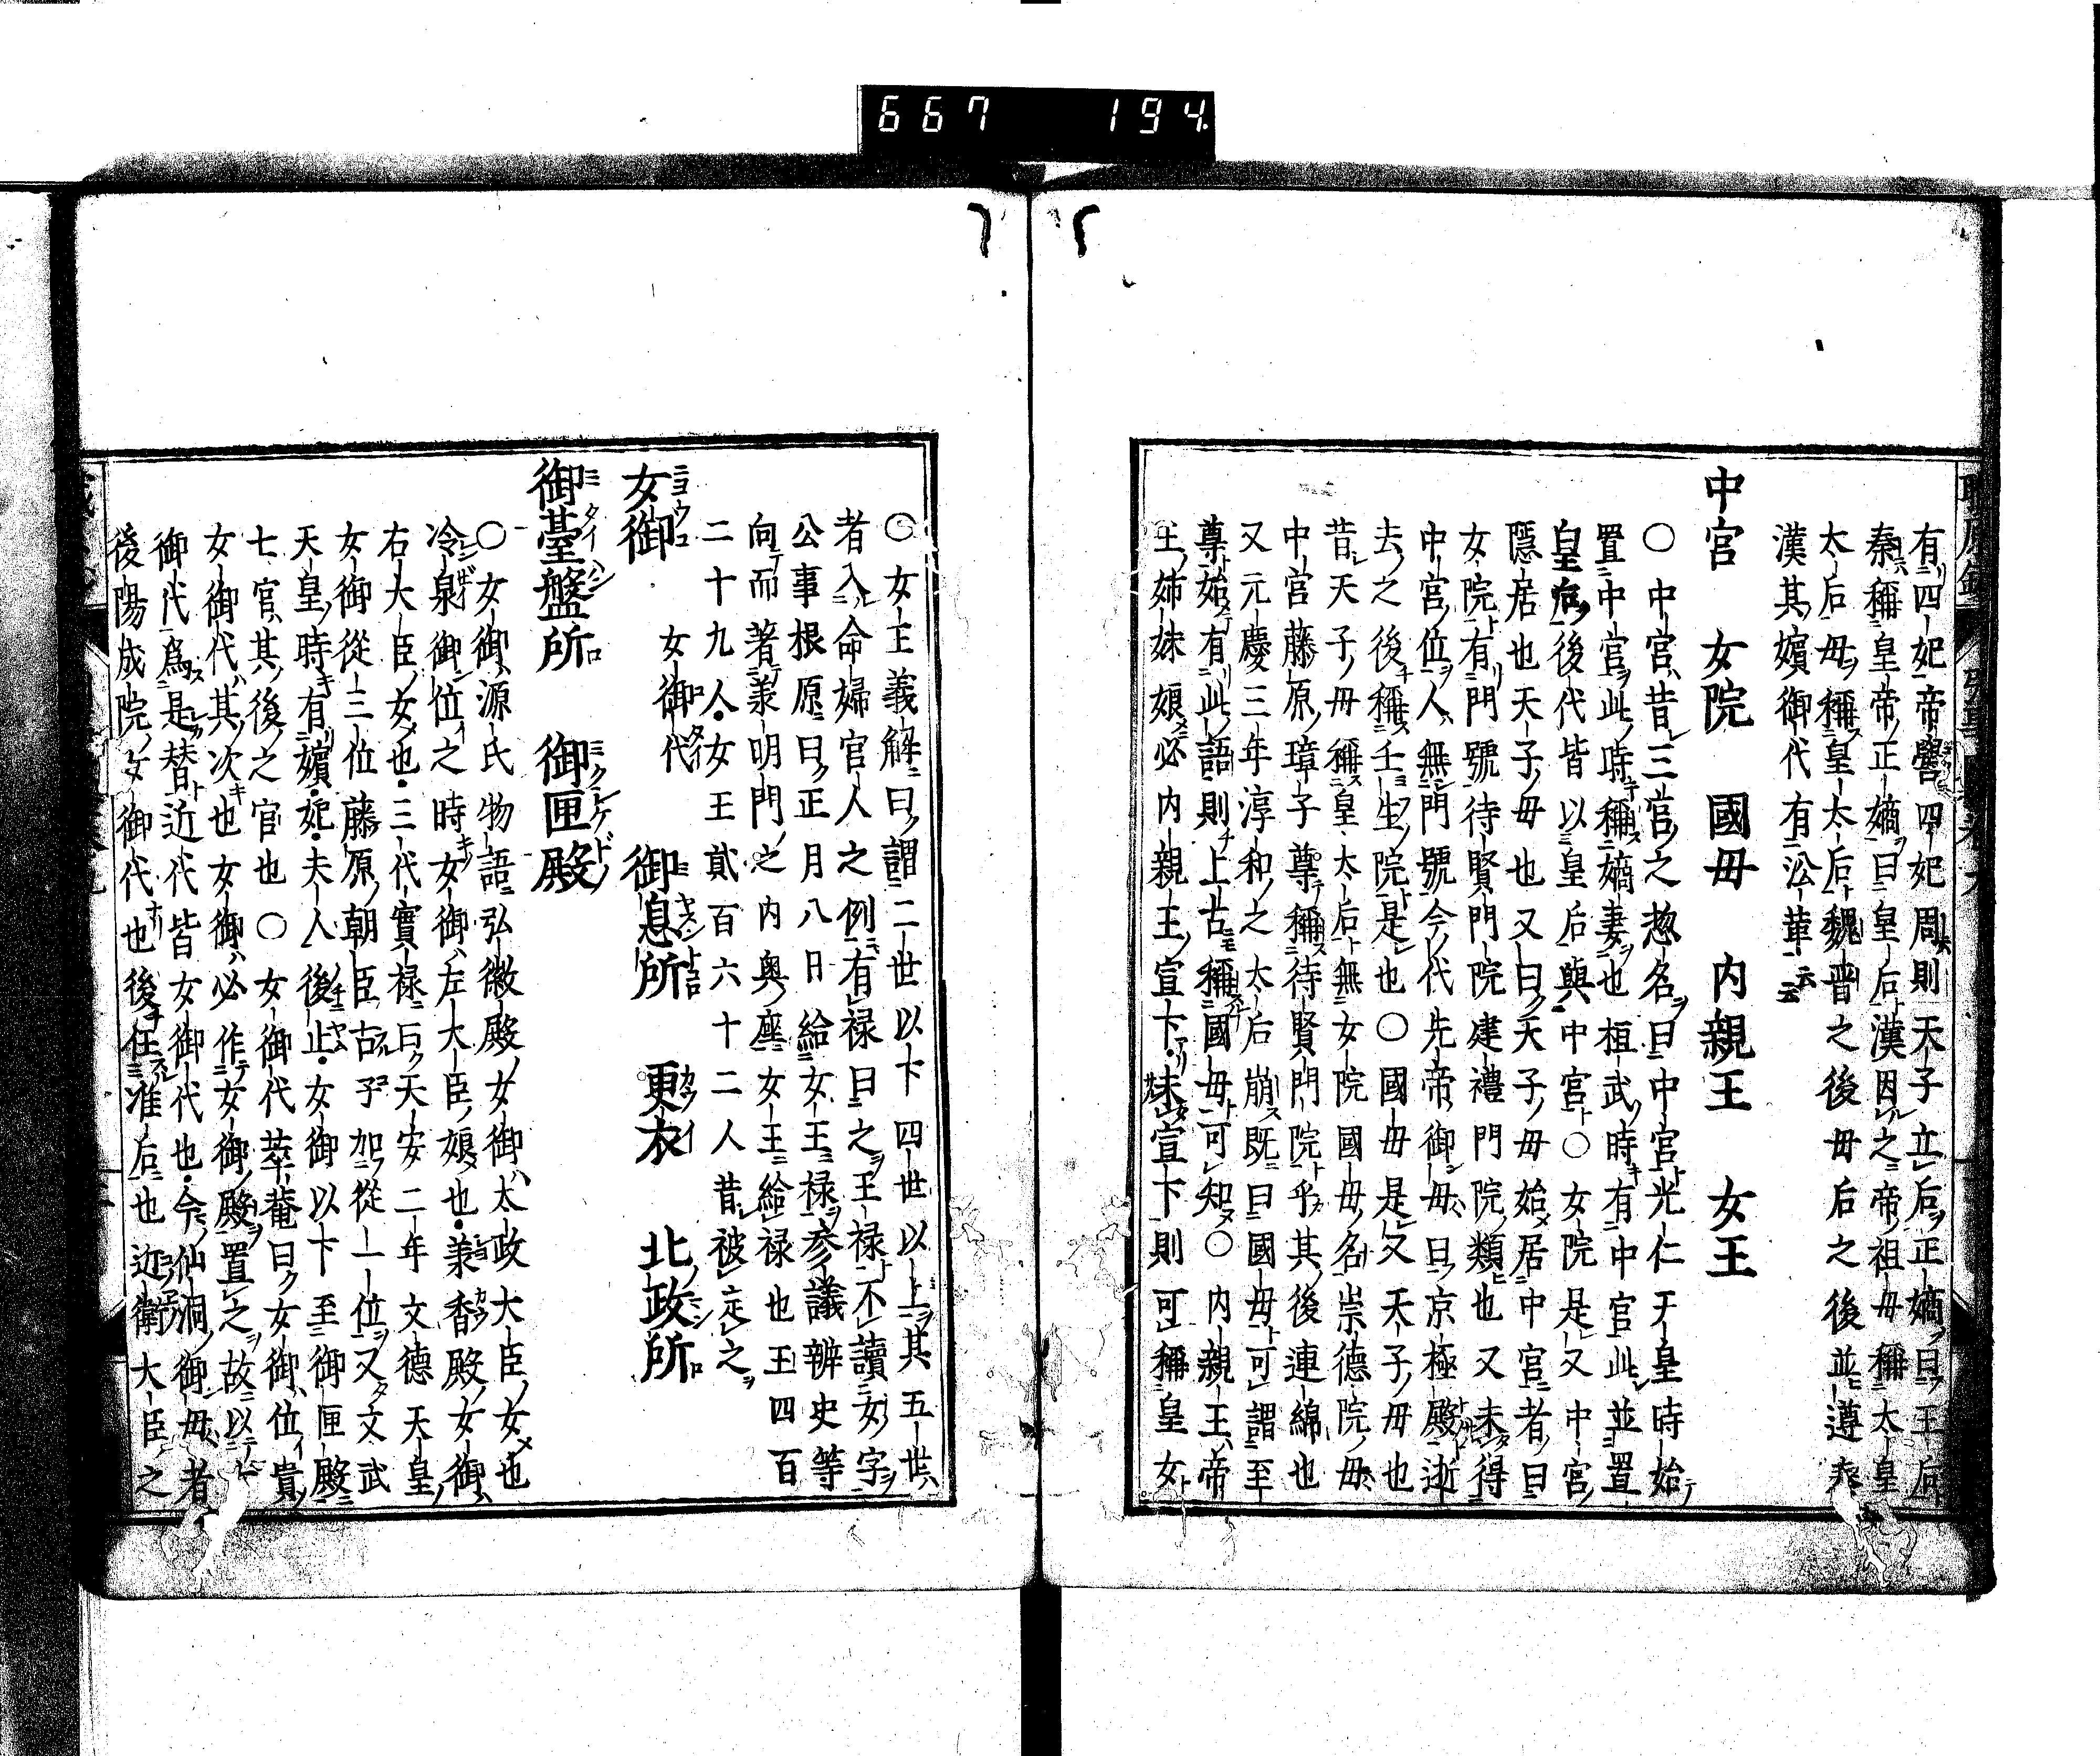 667 194
有四妃帝嚳四妃周則天子立后正嫡曰王后
秦稱皇帝正嫡曰皇后漢因之帝祖母稱太皇
太后母稱皇太后魏晋之後母后之後並遵秦
漢其嬪御代有沿革云云
中宮 女院 國母 内親王 女王
○中宮昔三宮之惣名曰中宮光仁天皇時始
置中宮此時稱嫡妻也桓武時有中宮此並置
皇后後代皆以皇后與中宮○女院是又中宮
隱居也天子母也又曰天子母始居中宮者曰
女院有門號待賢門院建禮門院類也又未得
中宮位人無門號今代先帝御母曰京極殿逝
去之後稱壬生院是也○國母是又天子母也
昔天子母稱皇太后無女院國母名崇德院母
中宮藤原璋子尊稱待賢門院乎其後連綿也
又元慶三年淳和之太后崩既曰國母可謂至
尊始有此語則上古稱國母可知○内親王帝
王姉妹娘必内親王宣下未宣下則可稱皇女
○女王義解曰謂二世以下四世以上其五世
者入命婦官人之例有禄曰之王禄不讀女字
公事根原曰正月八日給女王禄参議辨史等
向而著羕明門之内奥座女王給禄也王四百
二十九人女王貳百六十二人昔被定之
女御 女御代 御息所 更衣 北政所
御臺盤所 御匣殿
○女御源氏物語弘徽殿女御太政大臣女也
冷泉御位之時女御左大臣娘也羕香殿女御
右大臣女也三代實禄曰天安二年文德天皇
女御從三位藤原朝臣古子加從一位又文武
天皇時有嬪妃夫人後止女御以下至御匣殿
七官其後之官也○女御代萃菴曰女御位貴
女御代其次也女御必作女御殿置之故以
御代爲是替近代皆女御代也今仙洞御母者
後陽成院女御代也後任准后也近衛大臣之